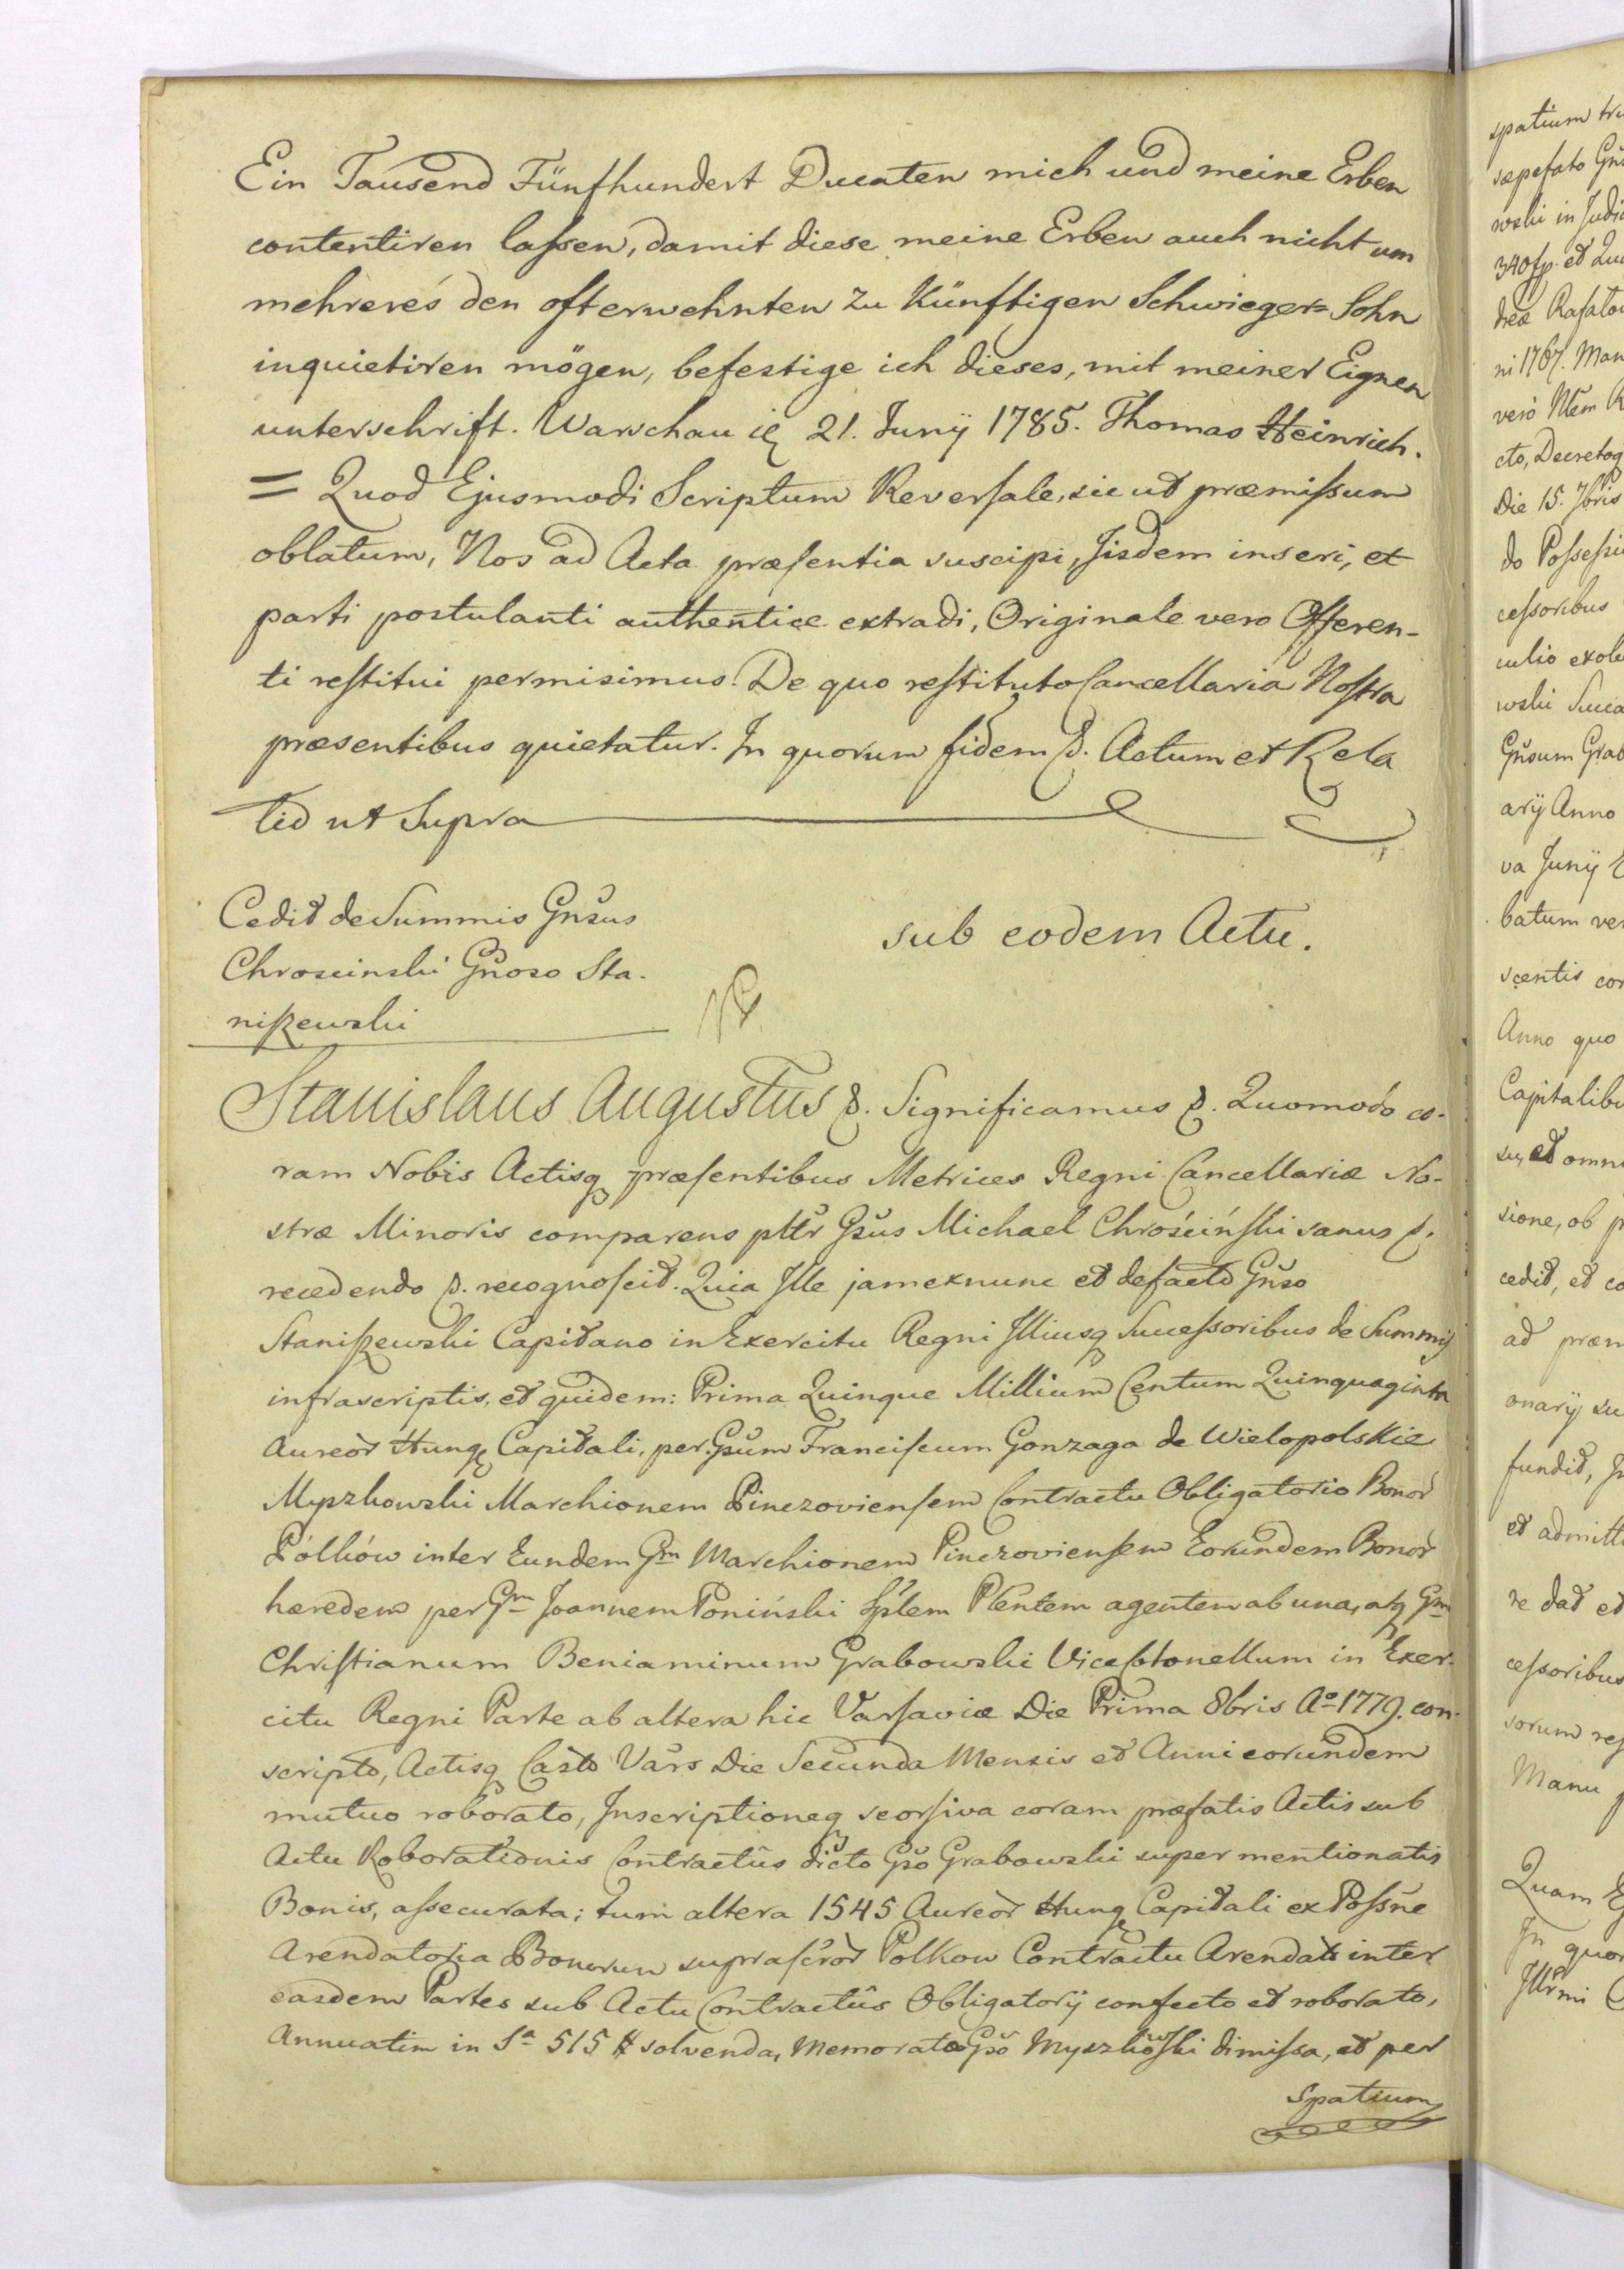 Ein Tausend Fünfhundert Ducaten mich und meine Erben
contentiren laßen, damit diese meine Erben auch nicht um
mehrere's den ofterwehnten zu Künftigen Schwieger= Sohn
inquietiren mögen, befestige ich dieses, mit meiner Eignen
unterschrift. Warschau 21. Junÿ 1785. Thomas Heinrich.
= Quod Ejusmodi Scriptum Reversale, sic ut præmissum
oblatum, Nos ad Acta præsentia suscipi, Jisdem inseri, et
parti postulanti authentice extradi, Originale vero Offeren-
ti restitui permisimus. De quo restituto Cancellaria Nostra
præsentibus quietatur. In quorum fidem &. Actum et Rela
tio ut Supra
Cedit de Summis Gnsus
Chrosciński Gnoso Sta-
niszewski
sub eodem Actu.
Stanislaus Augustus &. Significamus &. Quomodo co-
ram Nobis Actisq præsentibus Metrices Regni Cancellariæ No-
stræ Minoris comparens plttr Gsus Michael Chrościński sanus &.
recedendo &. recognoscit. Quia Jlle jam exnunc et defacto Gnso
Staniszewski Capitano in Exercitu Regni Jlliusq Successoribus de Summis
infrascriptis, et quidem: Prima Quinque Millium Centum Quinquaginta
Aureor Hung Capitali, per Gsum Franciscum Gonzaga de Wielopolskie
Myszkowski Marchionem Pinczoviensem Contractu Obligatorio Bonor
Pólków inter Eundem Gm Marchionem Pinczoviensem Eorundem Bonor
hæredem per Gm Joannem Poniński Splem Plentem agentem ab una, atq Gm
Christianum Beniaminum Grabowski Vice Colonellum in Exer-
citu Regni Parte ab altera hic Varsaviæ Die Prima 8bris Ao 1779. con-
scripto, Actisq Casto Vars Die Secunda Mensis et Anni eorundem
mutuo roborato, Inscriptioneq seorsiva coram præfatis Actis sub
Actu Roborationis Contractûs dicto Gso Grabowski super mentionatis
Bonis, assecurata; tum altera 1545 Aureor Hung Capitali ex Possne
Arendatoria Bonorum suprascror Polkow Contractu Arendato inter
easdem Partes sub Actu Contractûs Obligatorÿ confecto et roborato,
Annuatim in Sa 515 # solvenda, Memorato Gso Myszkowski dimissa, et per
Spatium
spatium
sæpefato
wski in
340 fp. et
dreæ
ni 1767.
vero
cto,
Die 15. 7bris
do
cessoribus
wski
Gnsum
arÿ Anno
va Junÿ
batum
Anno quo
Capitalib
et omn
sione, ob
cedit, et
ad
fundit,
et
re dat et
cessoribus
Manu
Quam
Jn